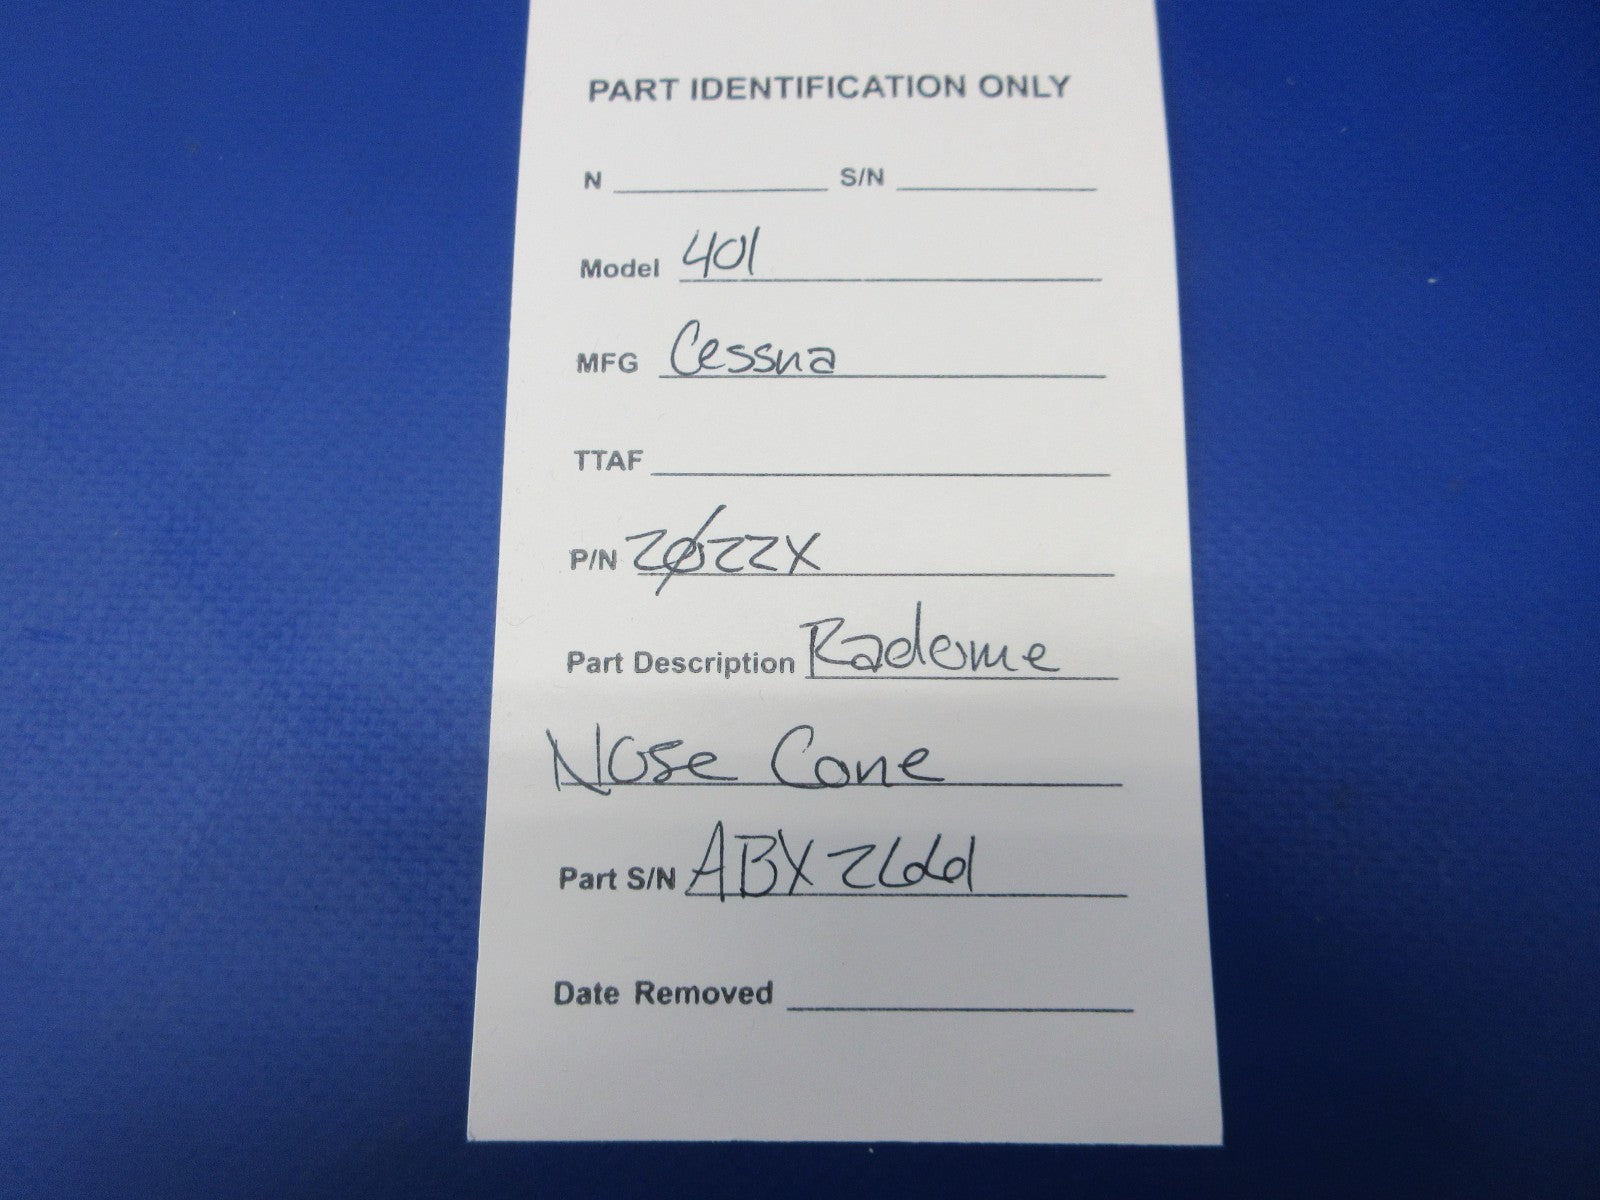 PART IDENTIFICATION ONLY
N S/N
Model 401
MFG Cessna
TTAF
P/N 2Ø22X
Part Description Radome
Nose Cone
Part S/N ABX2661
Date Removed